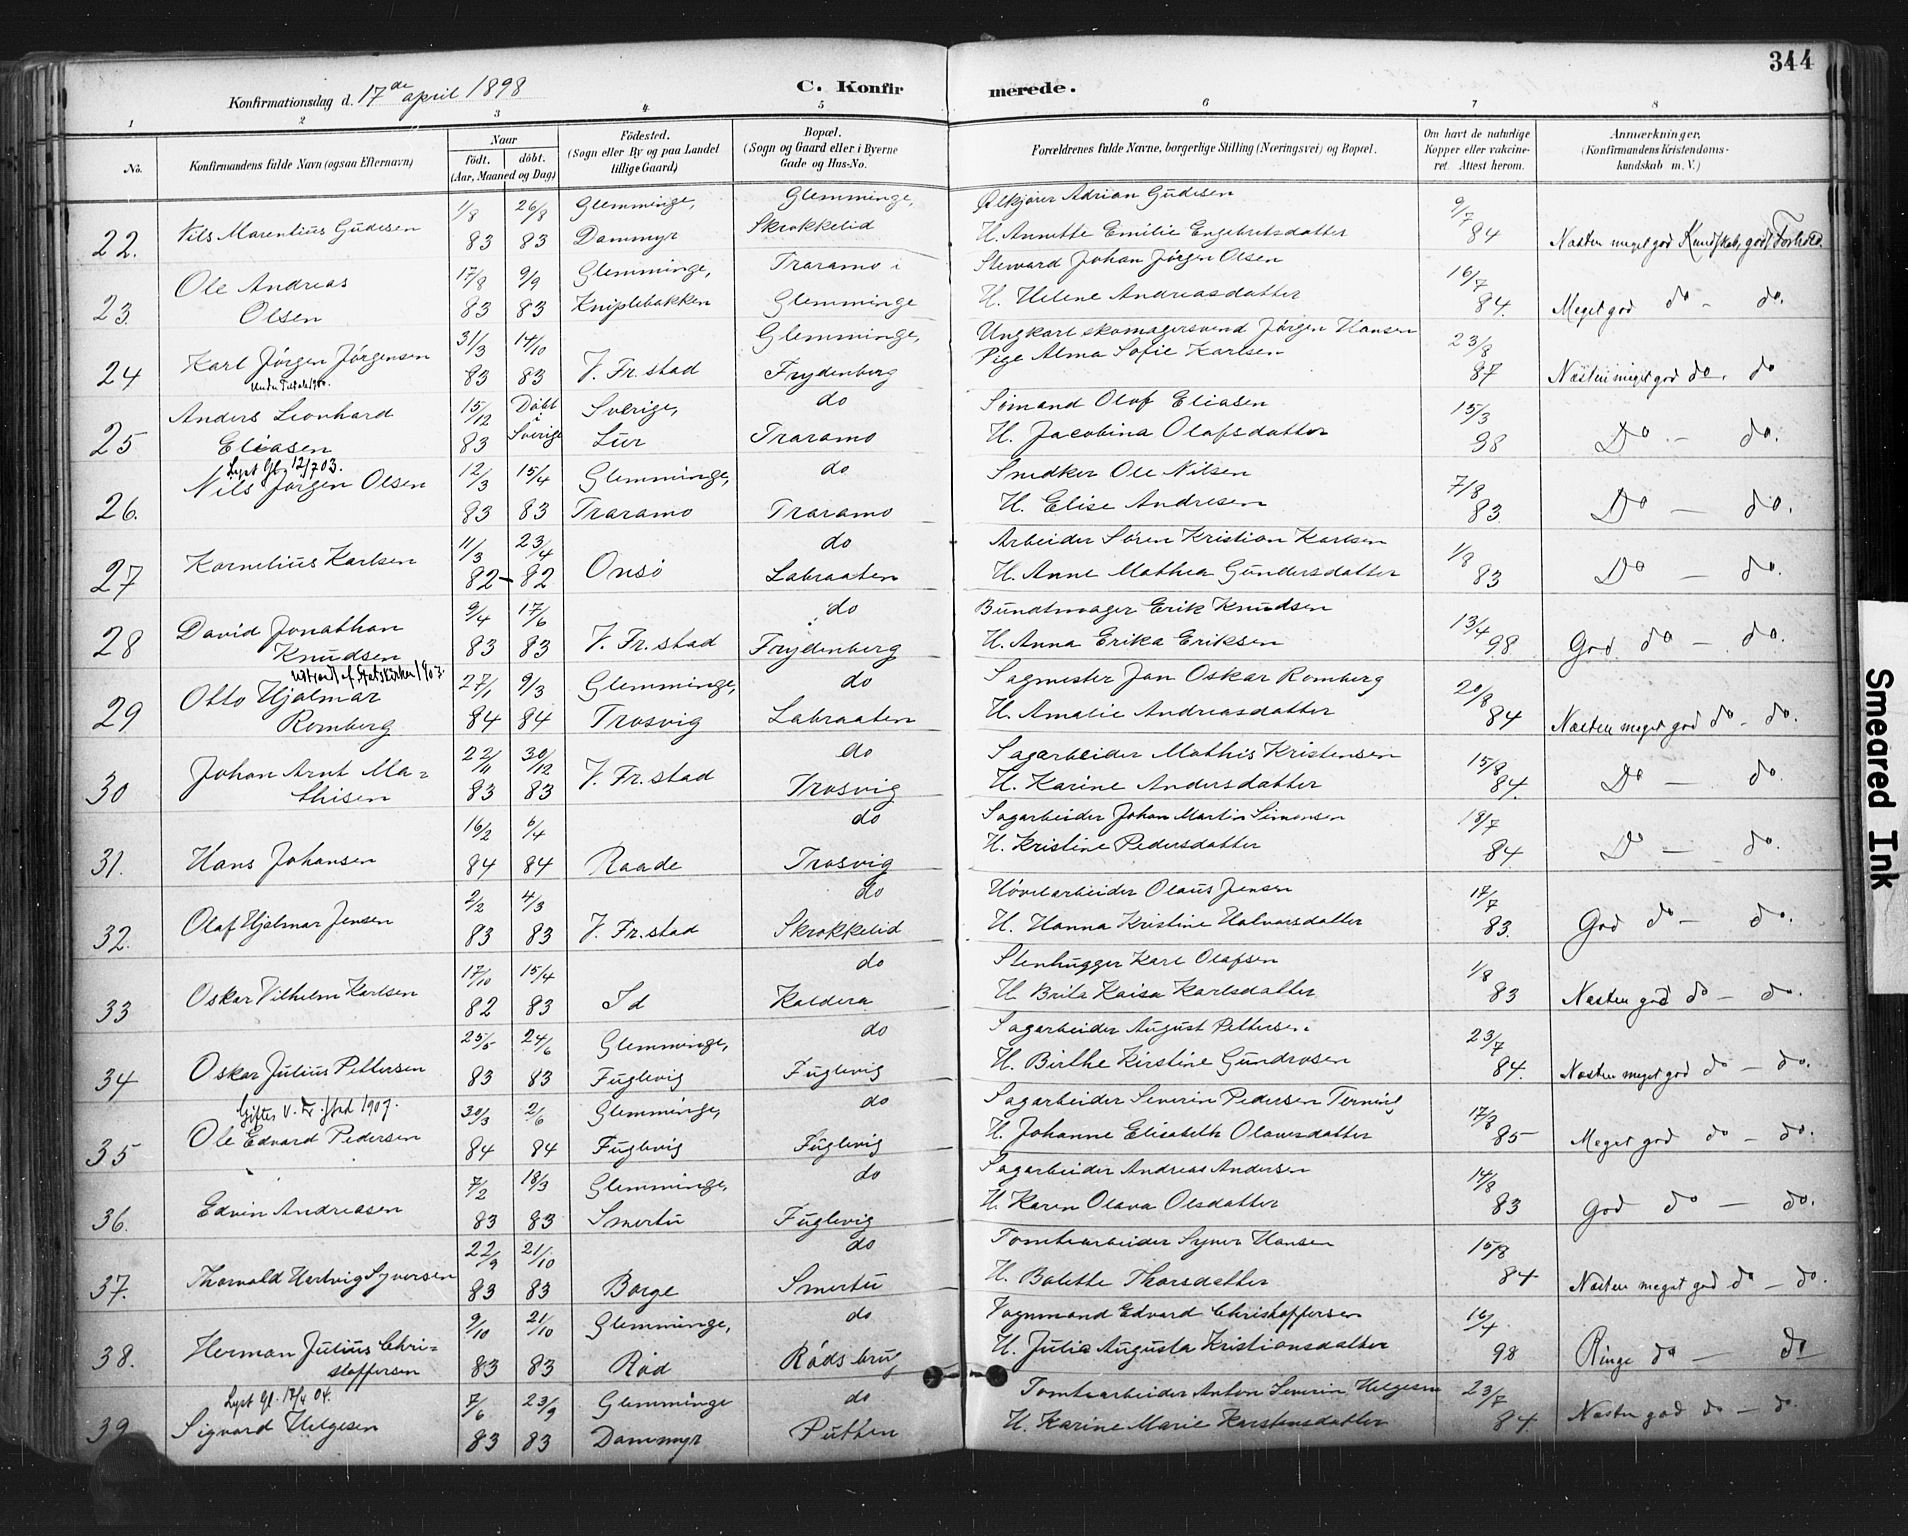 344
Konfirmationsdag d. 17de april 1898
C. Konfirmerede.
1 2 3 4 5 6 7 8
No.
Konfirmandens fulde Navn (ogsaa Efternavn)
Naar
Födt. döbt.
(Aar, Maaned og Dag)
Födested.
(Sogn eller By og paa Landet
tillige Gaard)
Bopæl.
(Sogn og Gaard eller i Byerne
Gade og Hus-No.
Forældrenes fulde Navne, borgerlige Stilling (Næringsvei) og Bopæl.
Om havt de naturlige
Kopper eller vakcine-
ret. Attest herom.
Anmærkninger,
(Konfirmandens Kristendoms-
kundskab m. V.)
1/8 26/8 Glemminge, Glemminge, Ølkjører Adrian Gudesen 9/7
22. Nils Marentius Gudesen 83 83 Dammyr Skrokkelid H. Annette Emilie Engebretsdatter 84 Næsten meget god Kundskab, godt Forhold
Ole Andreas 17/8 9/9 Glemminge, Traramo i Steward Johan Jörgen Olsen 16/7
23. Olsen 83 83 Kniplebakken Glemminge H. Helene Andreasdatter 84. Meget god do - do.
31/3 14/10 Glemminge, Ungkarl skomagersvend Jörgen Hansen 23/8
24 Karl Jörgen Jörgensen 83 83 V. Fr.stad Frydenberg Pige Alma Sofie Karlsen 87 Næsten meget god do. do
Anders Leonhard 15/12 Döbt i Sverige, do Sömand Olof Eliasen 15/3
25 Eliasen 83 Sverige Lur Traramo H. Jacobina Olafsdatter 98 Do - do.
Lyst Gl. 12/7 03.
26. Nils Jörgen Olsen 12/3 15/4 Glemminge, do Snedker Ole Nilsen 7/8
83 83 Traramo Traramo H. Elise Andresen 83 Do - do.
11/3 23/4 do Arbeider Sören Kristian Karlsen 1/8
27 Kornelius Karlsen 82 - 82 Onsö Labraaten H. Anne Mathea Gundersdatter 83 Do - do.
David Jonathan 9/4 17/6 do Bundtmager Erik Knudsen 13/4
28 Knudsen 83 83 V. Fr.stad Frydenberg H. Anna Erika Eriksen 98 God do - do.
Udtraadt af Statskirken 1903.
Otto Hjalmar 27/1 9/3 Glemminge, do Sagmester Jan Oskar Romberg 20/8
29 Romberg 84 84 Trosvig Labraaten H. Amalie Andreasdatter 84 Næsten meget god do - do.
Johan Arnt Ma- 22/11 30/12 do Sagarbeider Mathis Kristensen 15/8
30 thisen 83 83 V. Fr.stad Trosvig H. Karine Andersdatter 84. Do - do.
16/2 6/4 do Sagarbeider Johan Martin Simensen 18/7
31. Hans Johansen 84 84 Raade Trosvig H. Kristine Pedersdatter 84. Do - do.
2/2 4/3 do Hövelarbeider Olaus Jensen 17/7
32. Olaf Hjalmar Jensen 83 83 V. Fr.stad Skrokkelid H. Hanna Kristine Halvorsdatter 83. God do - do.
17/10 15/4 do Stenhugger Karl Olafsen 1/8
33 Oskar Vilhelm Karlsen 82 83 Id Kaldera H. Brita Kaisa Karlsdatter 83 Næsten god do - do.
25/5 24/6 Glemminge, do Sagarbeider August Pettersen 23/7
34 Oskar Julius Pettersen 83 83 Fuglevig Fuglevig H. Birthe Kirstine Gundrosen 84. Næsten meget god do - do.
Giftes V. Fr.stad 1907.
30/3 2/6 Glemminge, do Sagarbeider Severin Pedersen Terning 17/8
35 Ole Edvard Pedersen 84 84 Fuglevig Fuglevig H. Johanne Elisabeth Olavesdatter 85 Meget god do - do.
7/2 18/3 Glemminge, do Sagarbeider Andreas Andersen 14/8
36. Edvin Andreasen 83 83 Smertu Fuglevig H. Karen Olava Olsdatter 83 God do - do.
22/9 21/10 do Tomtearbeider Syver Hansen 15/8
37. Thorvald Hartvig Syversen 83 83 Borge Smertu H. Bolette Thorsdatter 84 Næsten meget god do - do.
9/10 21/10 Glemminge, do Vognmand Edvard Christoffersen 16/4
38. Herman Julius Chri-
stoffersen 83 83 Röd Röds brug H. Julia Augusta Kristiansdatter 98 Ringe do - do
Lyst Gl. 17/4 04. 7/6 23/9 Glemminge do Tomtearbeider Anton Severin Helgesen 23/7
39. Sigvard Helgesen 83 83 Dammyr Putten H. Karine Marie Karstensdatter 84. Næsten god do - do.
Smeared Ink